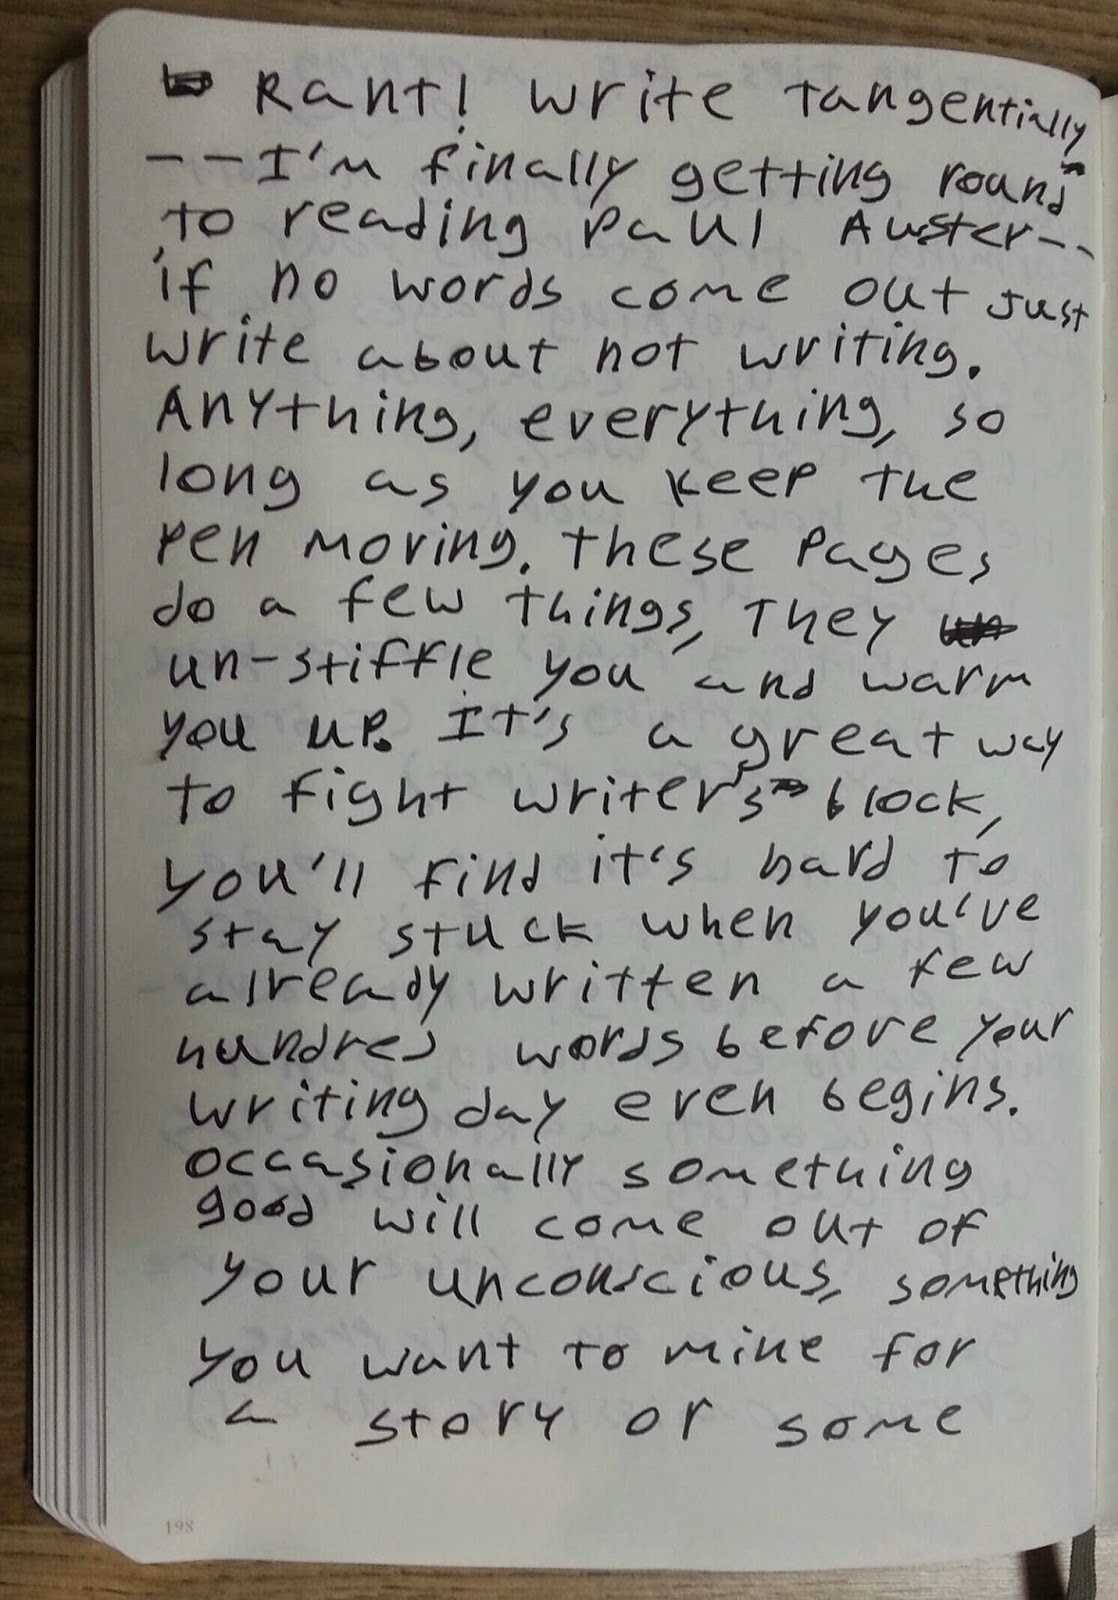 Rant! Write tangentially
--I'm finally getting round
to reading Paul Auster--
if no words come out just
write about not writing.
Anything, everything, so
long as you keep the
pen moving. These pages
do a few things, they
un-stiffle you and warm
you up. It's a great way
to fight writer's block,
you'll find it's hard to
stay stuck when you've
already written a few
hundred words before your
writing day even begins.
Occasionally something
good will come out of
your unconscious, something
you want to mine for
a story or some
198